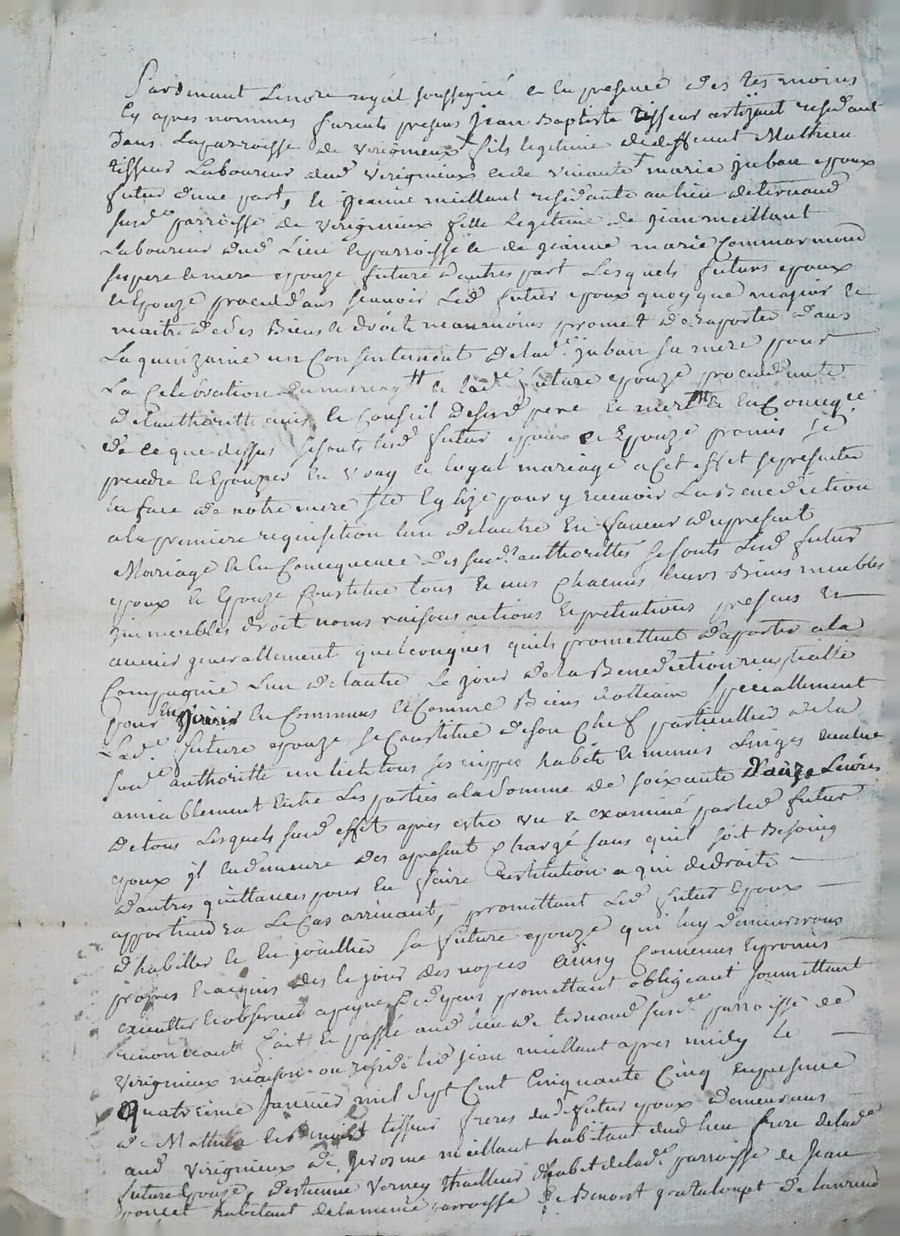 Pardevant Lenore royal soussigné et en presence des tesmoins
Cy apres nommes furents presens Jean Baptiste tisseur artisant residant
dans Laparroisse de Verigneux fils legitime de deffunt Mathieu
tisseur Laboureur dud Verigneux et de vivante marie juban epoux
futur d'une part, et jeanne meillant residante au lieu de ternaud
susd.e parroisse de Verigneux fille legitime de jean meillant
Laboureur dud Lieu et parroisse et de jeanne marie Commarmond
ses pere et mere epouze future d'autre part Lesquels futurs epoux
et Epouze procedans scavoir Led futur epoux quoyque majeur et
maitre de ses Biens et droits neanmoins promet de raporter dans
La quinzaine un Consentement de lad.e juban sa mere pour
La Celebration du mariag et lad.e future epouze procedante
de l'authoritté avis et Conseil desesd pere et mere et en Conseqce
de ce que dessus se sonts lesd futur epoux et Epouze promis se
prendre et Epouzer en vray et loyal mariage a cet effet se presenter
en face de notre mere Ste Eglize pour y recevoir La Benediction
a la premiere requisition l'un de lautre En faveur du present
Mariage et en Consequence des susd.es authorittés se sonts Lesd futur
epoux et Epouze Constitue tous et uns Chacuns leurs Biens meubles
immeubles droits noms raisons actions et pretentions presens et
avenir generallement quelconques quils promettent d'aporter a la
Compagnie L'un de lautre Le jour de la Benediction nuptialle
pour En jouir En Commun et Comme Biens dotteaux specialement
Lad.e future epouze se Constitue de son Chef particullier de la
susd.e authoritté un lict tous ses nippes habits et menus Linges
amiablement Entre Les parties a la somme de soixante d'ouze Livres
de tous Lesquels susd effet apres estre vu et examiné par led futur
epoux il en demeure des apresent Chargé sans quil soit Besoing
d'autres quittances pour En faire restitution a qui de droits
appartiendra Le Cas arrivant, promettant Led futur Epoux
d'habiller et en joallier sa future epouze qui luy demeurerons
propres et acquis des le jour des nopces Ainsy Convenus Epromis
executter et observer a peyne de depens promettant obligeant soumettant
renoncant fait et passé aud lieu de ternaud susd.e parroisse de
Verigneux maison ou reside led jean meillant apres midy Le
Quatrieme Janvier mil Sept Cent Cinquante Cinq En presence
de Mathieu et Benoist tisseur freres dud futur epoux demeurans
aud Verigneux de jerosme meillant habitant dud lieu frere de lad.e
future Epouze, d'estienne Verney tailleur d'habit de lad.e parroisse de Jean
poncet habitant de la meme parroisse de Benoist grataloupt